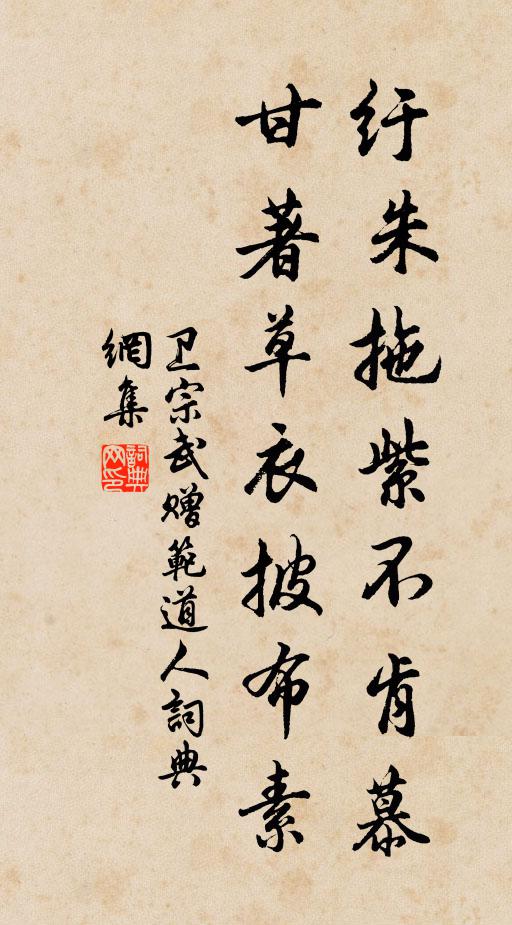 紆朱拖紫不肯慕
甘著草衣披布素
卫宗武赠範道人詞典
網集
詞典
网印